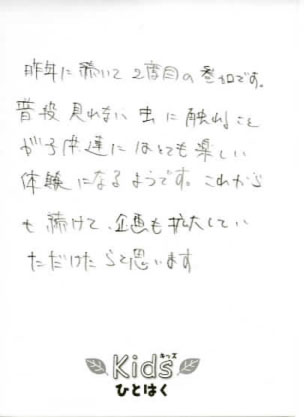 昨年に続いて2度目の参加です。
普段見れない虫に触れること
が子供達にはとても楽しい
体験になるようです。これから
も続けて、企画も拡大してい
ただけたらと思います
キッズ
Kids
ひとはく